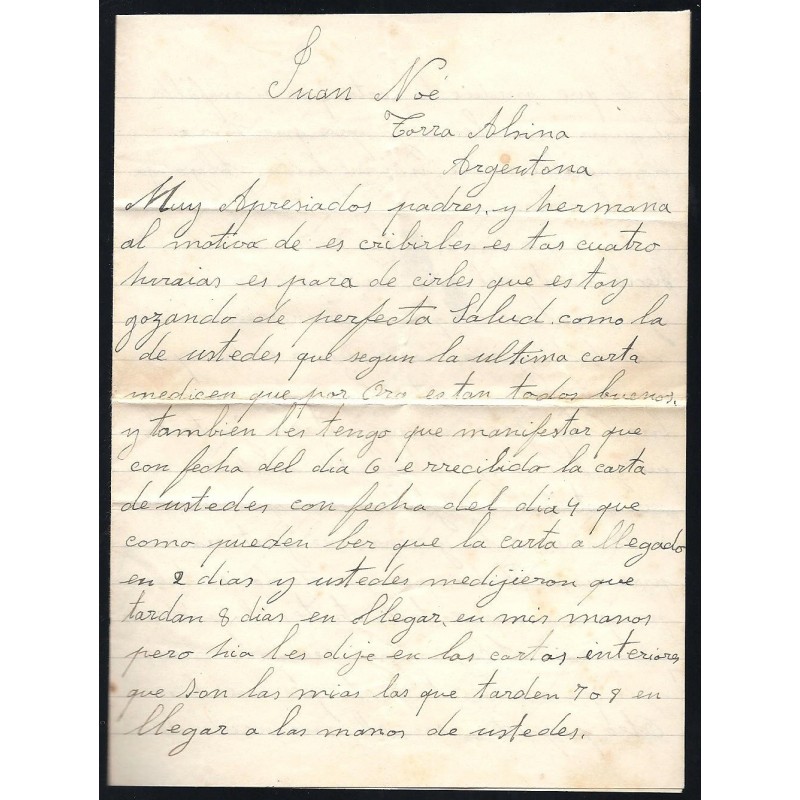 Juan Noé
Torra Alsina
Argentona
Muy Apresiados padres, y hermana
al motivo de es cribirles es tas cuatro
es para de cirles que es toy
gozando de perfecta Salud. como la
de ustedes que segun la ultima carta
medicen que por Ora es tan todos buenos.
y tambien les tengo que manifestar que
con fecha del dia 6 e rrecibido la carta
de ustedes con fecha del dia 4 que
como pueden ber que la carta a llegado
en 2 dias y ustedes medijieron que
tardan 8 dias en llegar, en mis manos
pero hia les dije en las cartas interiores
que son las mias las que tarden 7 o 8 en
llegar a las manos de ustedes.